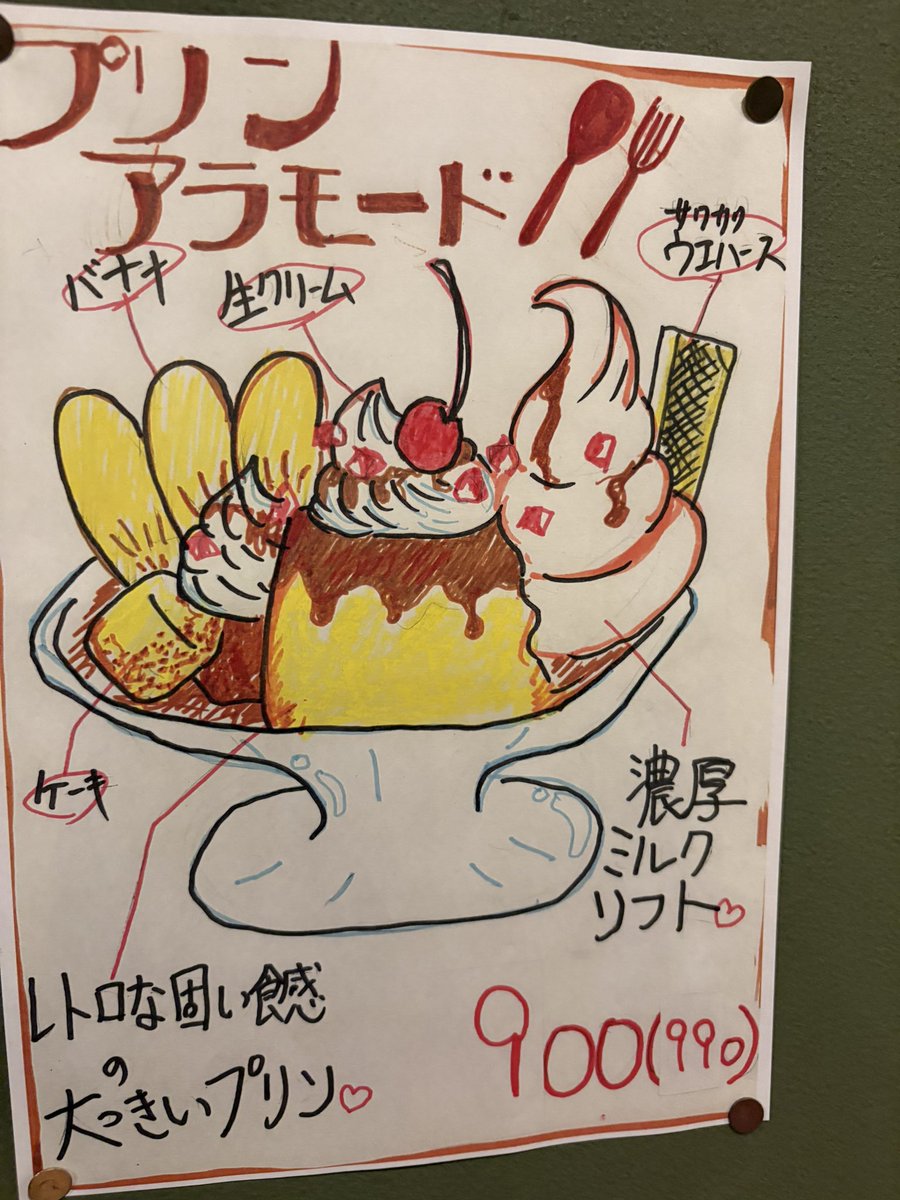 プリン
アラモード
バナナ
生クリーム
サクサク
ウエハース
ケーキ
濃厚
ミルク
ソフト♡
レトロな固い食感
の
大っきいプリン♡
900(990)